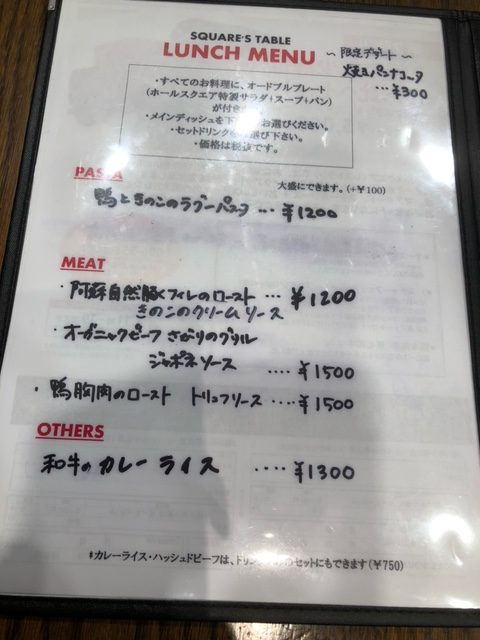 SQUARE'S TABLE
LUNCH MENU
~ 限定デザート ~
焼きパンナコッタ
… ¥300
・すべてのお料理に、オードブルプレート
(ホールスクエア特製サラダ+スープ+パン)
が付き
・メインディッシュを下 お選びください。
・セットドリンク び下さい。
・価格は税抜です。
PASTA
大盛にできます。(+¥100)
鴨ときのこのラグーパスタ … ¥1200
MEAT
・阿蘇自然豚ヒレのロースト … ¥1200
きのこのクリームソース
・オーガニックビーフ さがりのグリル
ジャポネソース
…. ¥1500
・鴨胸肉のロースト トリュフソース …. ¥1500
OTHERS
和牛のカレーライス …. ¥1300
*カレーライス・ハッシュドビーフは、ドリン のセットにもできます(¥750)